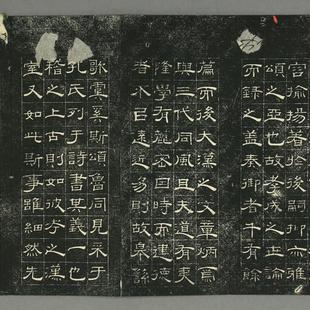 容揄揚著於後嗣抑亦雅
頌之亞也故孝成之世論
而錄之蓋奏御者千有餘
篇而後大漢之文章炳焉
與三代同風且夫道有夷
隆學有麤密因時而建德
者不以遠近易則故皋繇
歌虞奚斯頌魯同見采于
孔氏列于詩書其義一也
稽之上古則如彼考之漢
室又如此斯事雖細然先